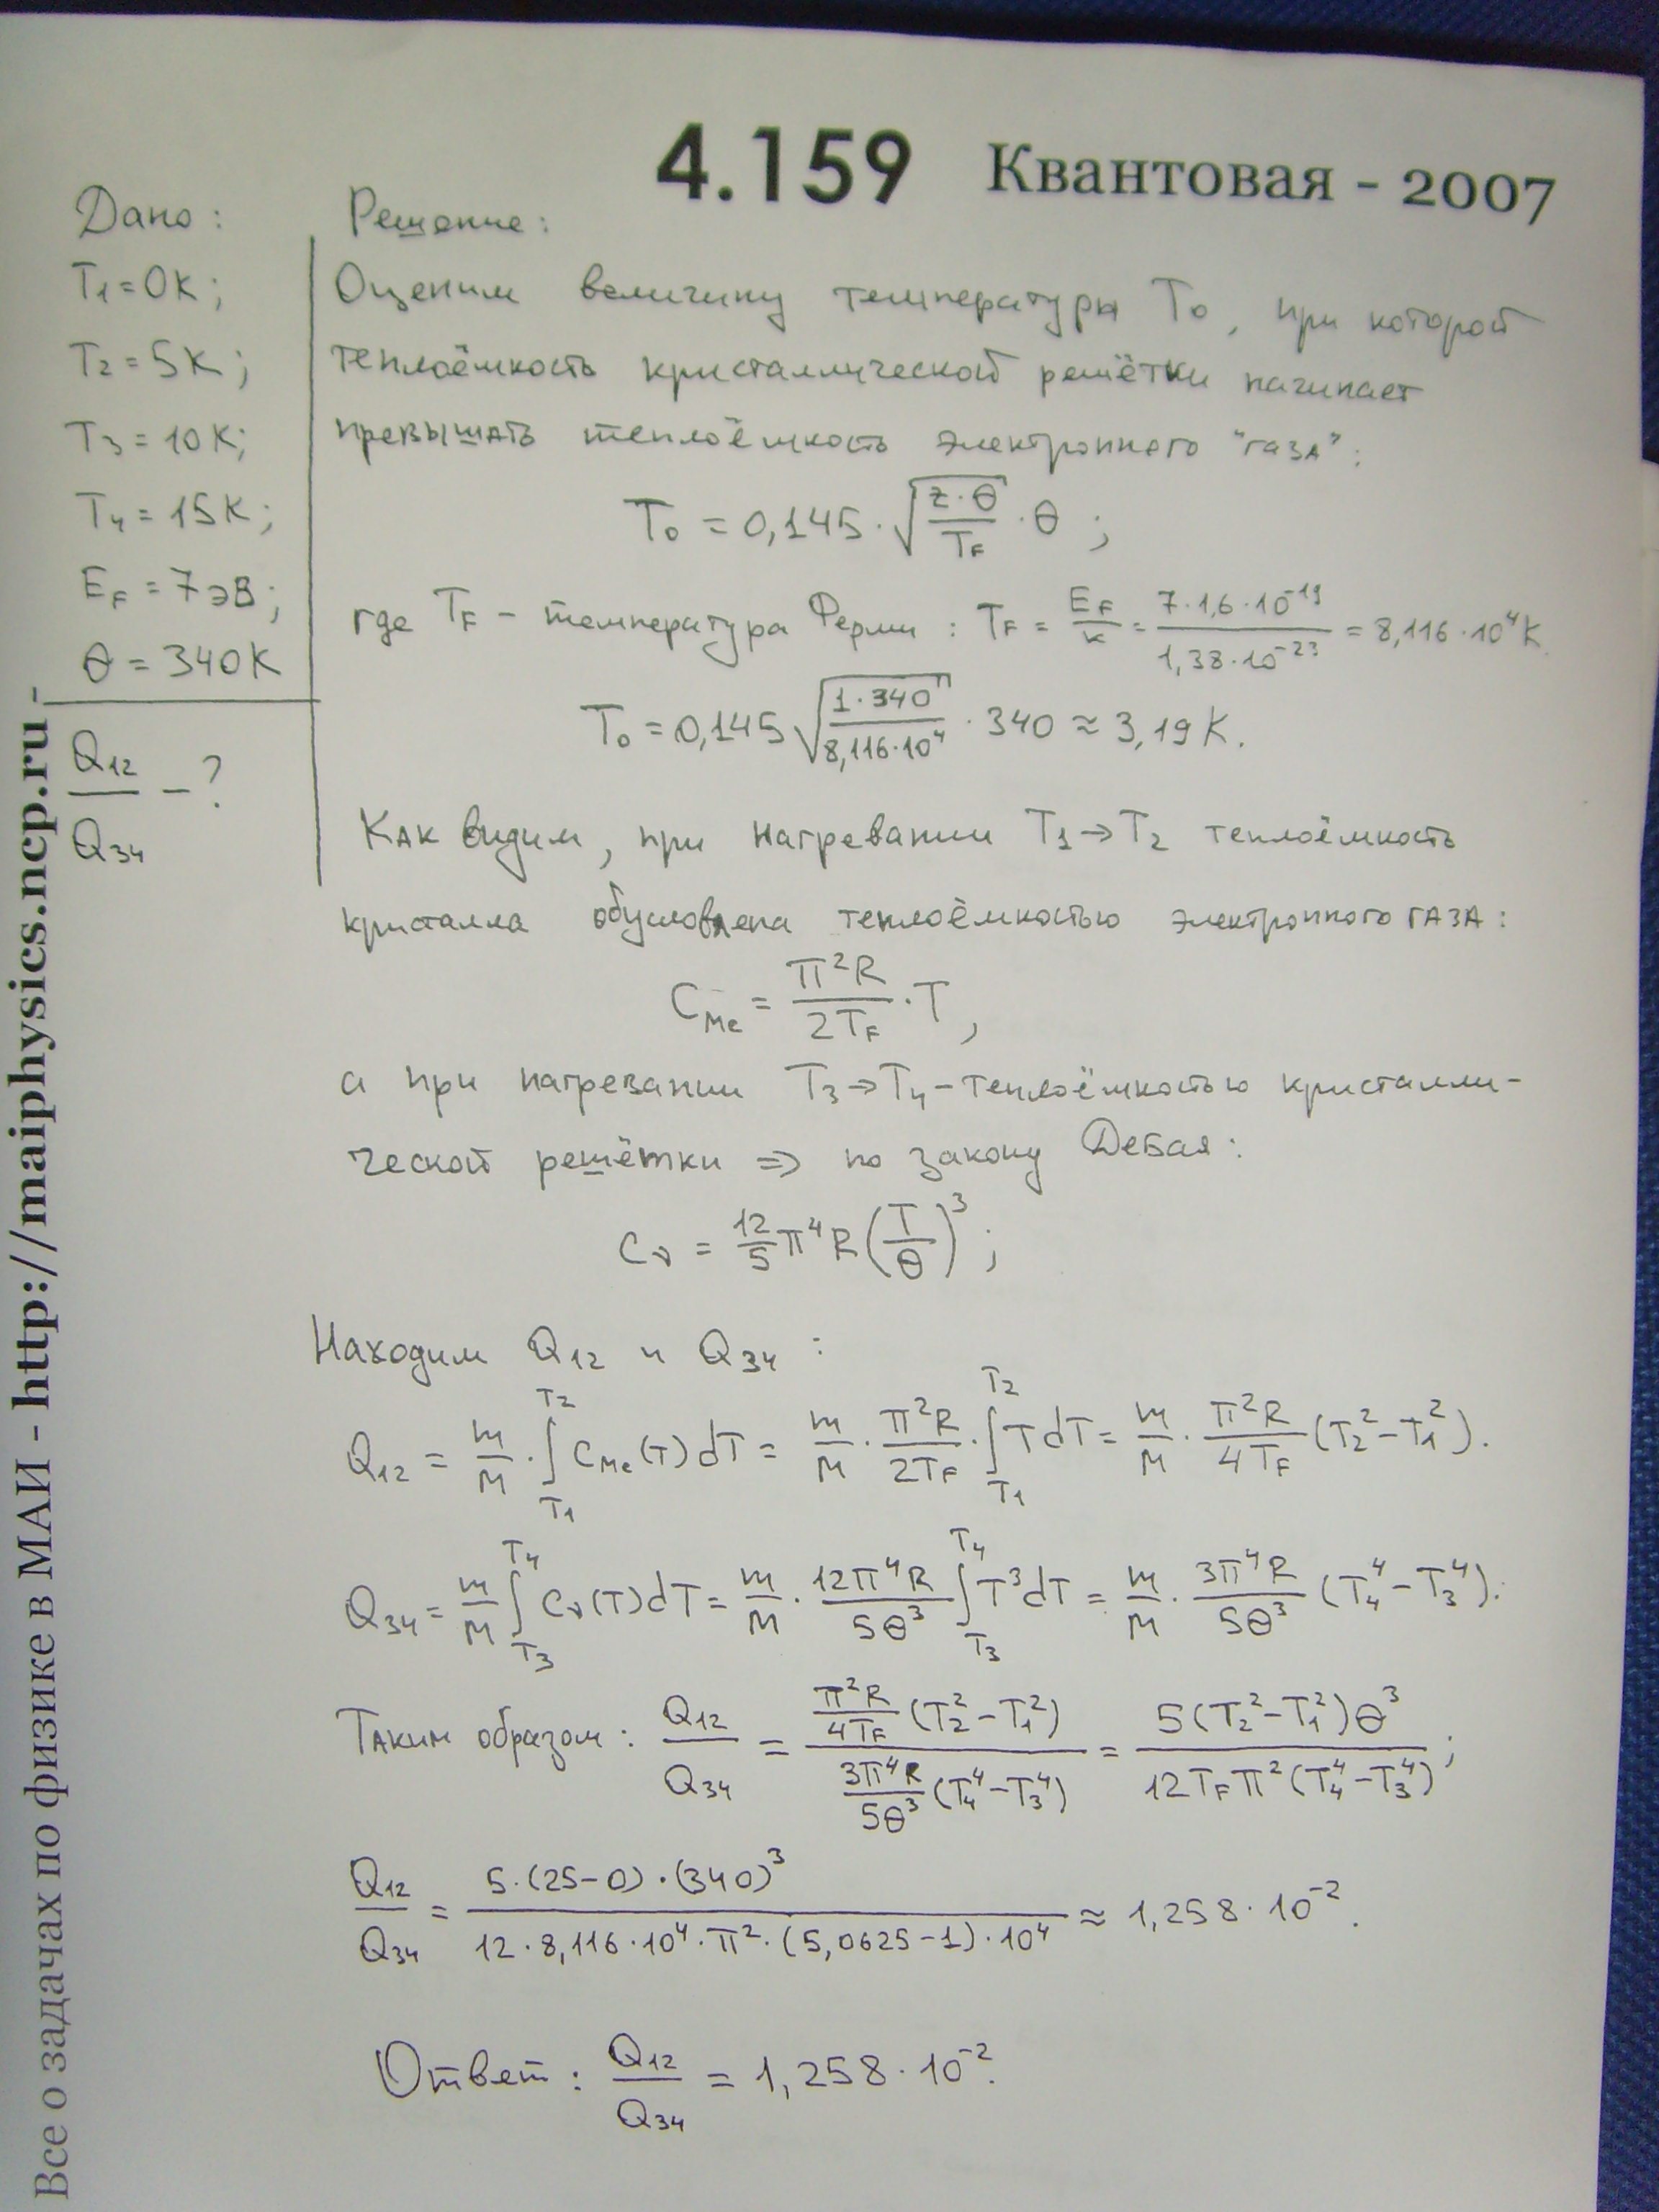 4.159 Квантовая - 2007
Дано:
T₁ = 0K;
T₂ = 5K;
T₃ = 10K;
T₄ = 15K;
E_F = 7эВ;
θ = 340K
Q₁₂/Q₃₄ - ?
Решение:
Оценим величину температуры T₀, при которой
теплоёмкость кристаллической решётки начинает
превышать теплоёмкость электронного "газа":
T₀ = 0,145 · √(z·θ/T_F) · θ ;
где T_F - температура Ферми : T_F = E_F/к = 7·1,6·10⁻¹⁹/1,38·10⁻²³ = 8,116·10⁴K.
T₀ = 0,145 √(1·340/8,116·10⁴) · 340 ≈ 3,19K.
Как видим, при нагревании T₁→T₂ теплоёмкость
кристалла обусловлена теплоёмкостью электронного газа:
C_Me = π²R/2T_F · T,
а при нагревании T₃→T₄ - теплоёмкостью кристалли-
ческой решётки ⇒ по закону Дебая:
C_ν = 12/5 π⁴R(T/θ)³ ;
Находим Q₁₂ и Q₃₄ :
Q₁₂ = m/M · ∫_T₁^T₂ C_Me(T)dT = m/M · π²R/2T_F · ∫_T₁^T₂ TdT = m/M · π²R/4T_F (T₂² - T₁²).
Q₃₄ = m/M ∫_T₃^T₄ C_ν(T)dT = m/M · 12π⁴R/5θ³ ∫_T₃^T₄ T³dT = m/M · 3π⁴R/5θ³ (T₄⁴ - T₃⁴).
Таким образом: Q₁₂/Q₃₄ = (π²R/4T_F (T₂² - T₁²))/(3π⁴R/5θ³ (T₄⁴ - T₃⁴)) = 5(T₂² - T₁²)θ³/12T_Fπ²(T₄⁴ - T₃⁴) ;
Q₁₂/Q₃₄ = 5·(25-0)·(340)³/12·8,116·10⁴·π²·(5,0625-1)·10⁴ ≈ 1,258·10⁻².
Ответ: Q₁₂/Q₃₄ = 1,258·10⁻².
Все о задачах по физике в МАИ - http://maiphysics.ncp.ru -